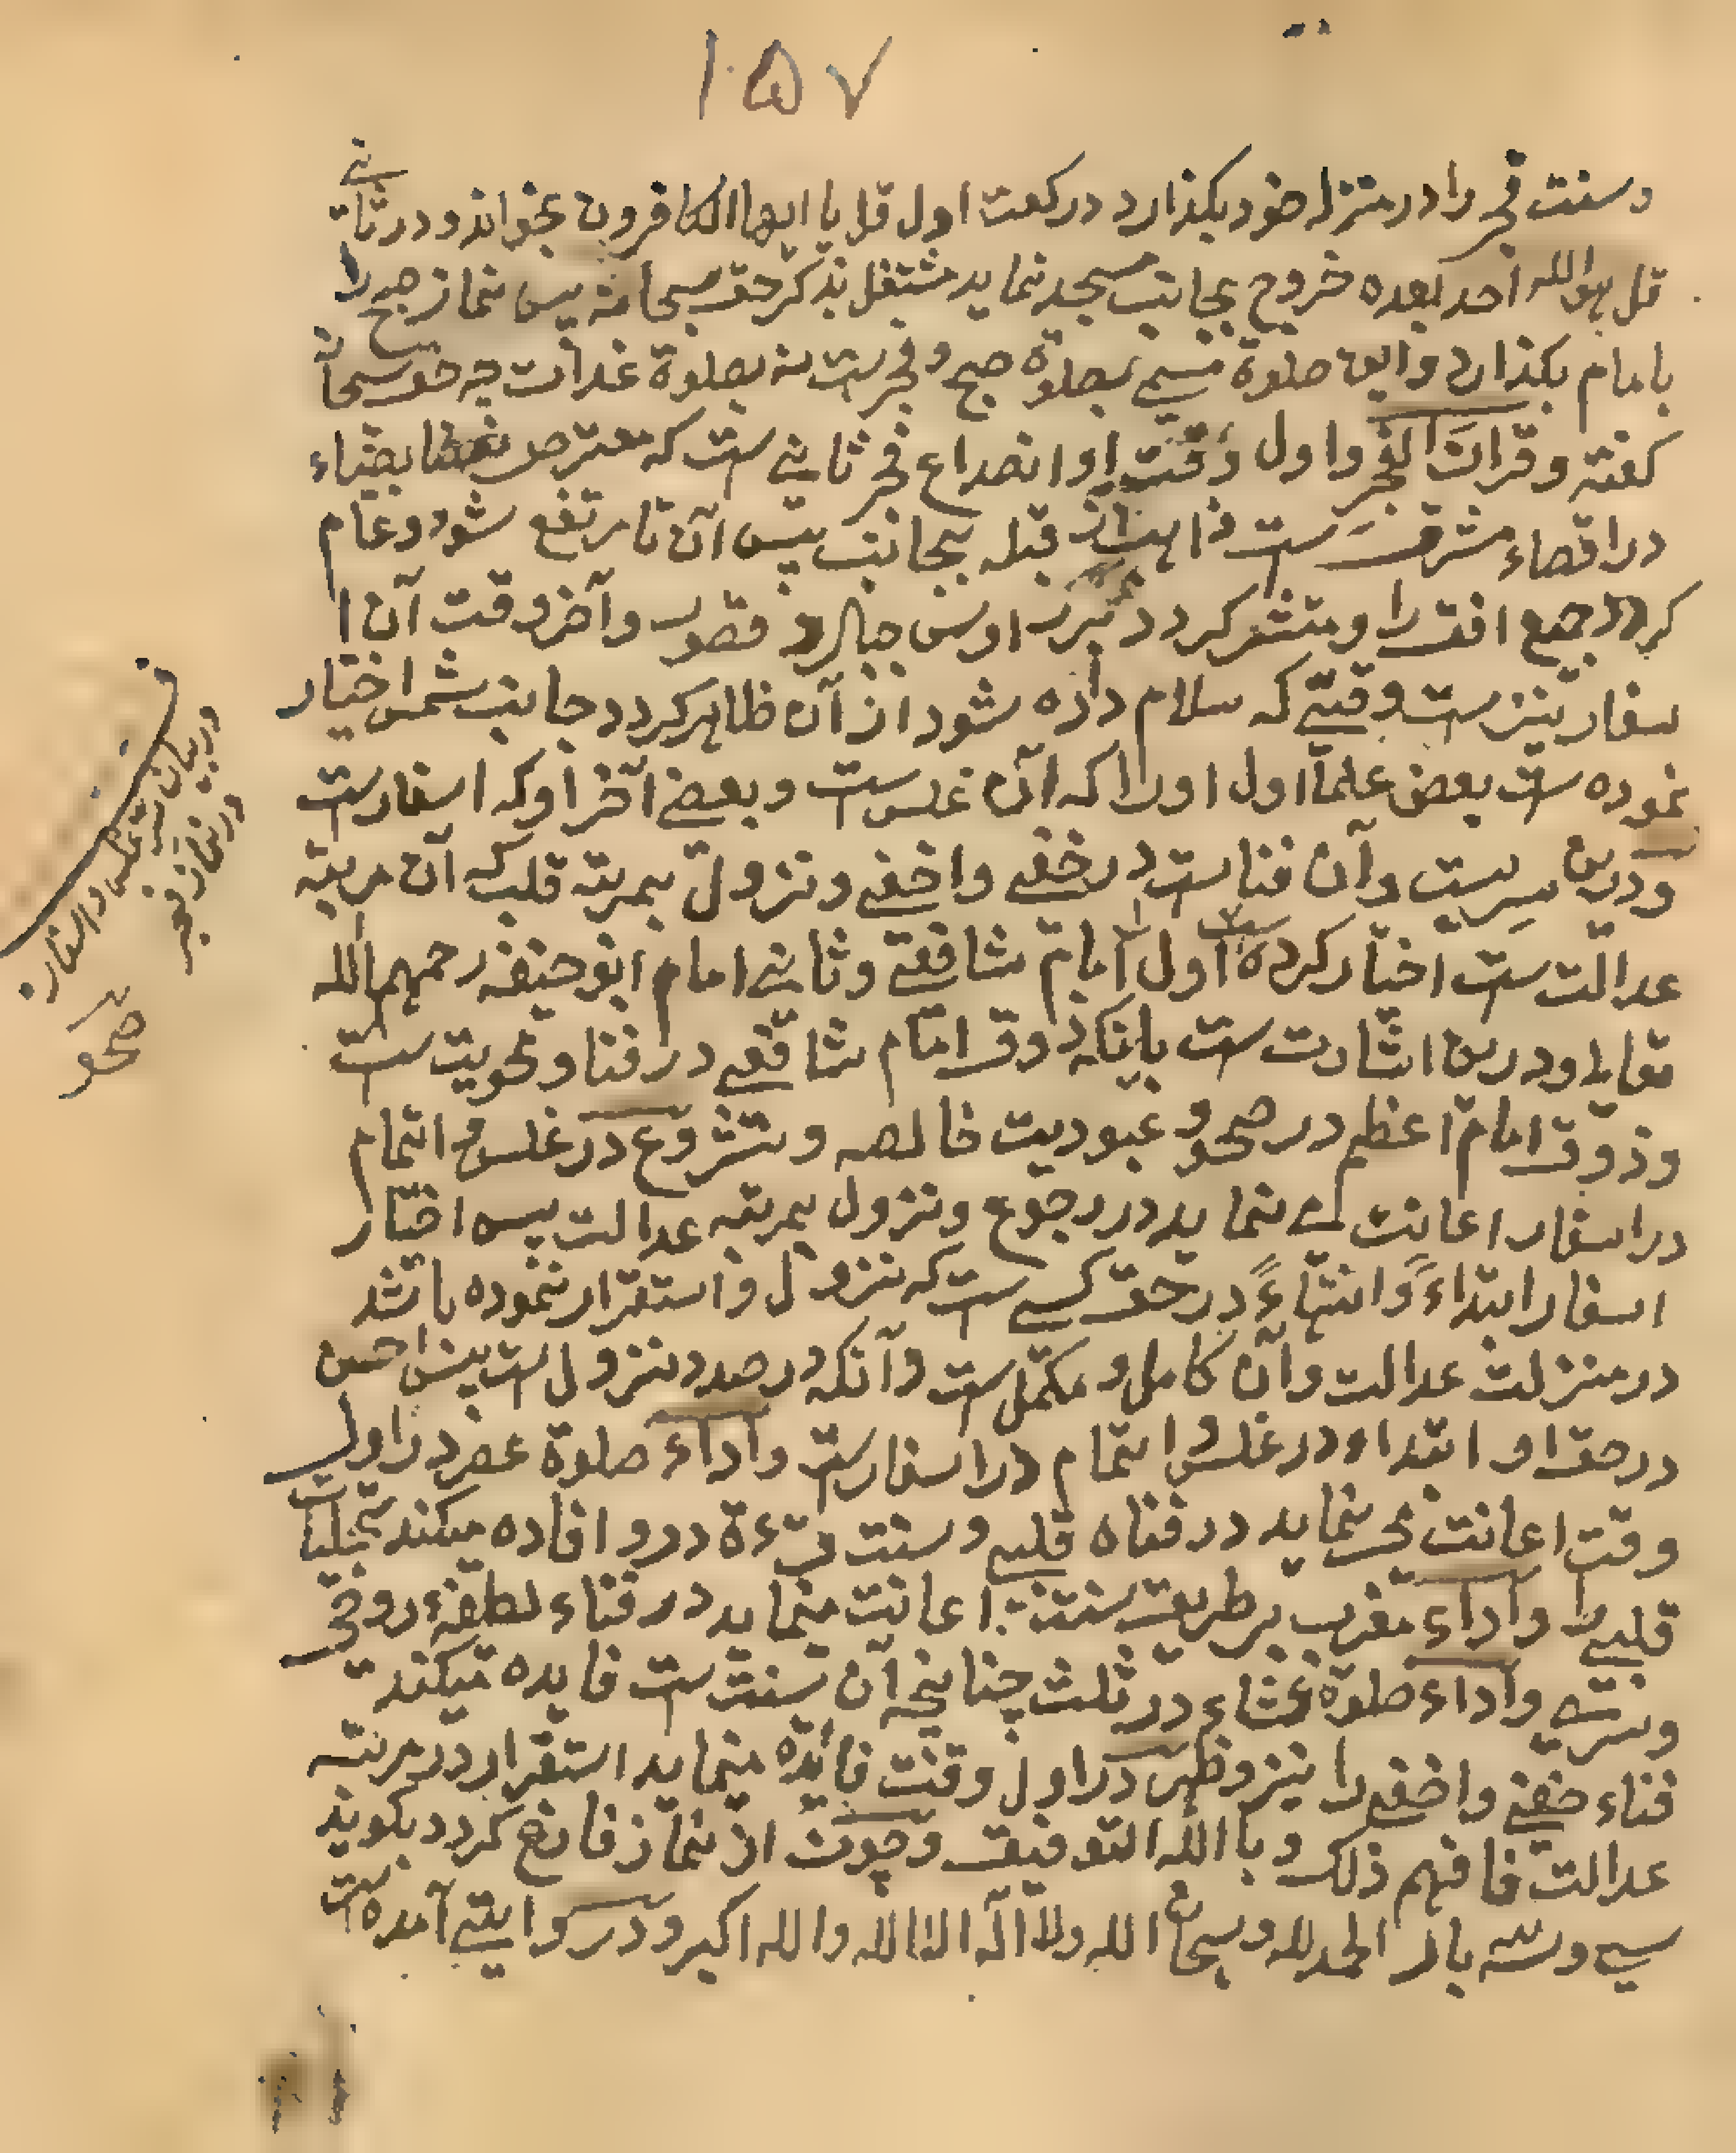 ۱۵۷
و سنت فجر را در منزل خود بکذارد در رکعت اول قل یا ایها الکافرون بخواند و در ثانی
قل هو الله احد بعده خروج بجانب مسجد نماید مشتغل بذکر حق سبحانه پس نماز صبح را
بامام بکذارد و این صلوة مسمی بصلوة صبح و فجرست نه بصلوة غدات چه حق سبحانه
کفته و قرآن الفجر و اول وقت او انصداع فجر ثانی ست که معترض بضیاء
در اقصاء مشرق ست قبله بجانب پس آن تا مرتفع شود و عام
کردد جمیع افق را و منتشر کردد بر رؤس جبال و قصور و آخر وقت آن ا
سفار نیز ست وقتی که سلام داده شود از آن ظاهر کردد حاجب شمس اختیار
نموده ست بعض علما اول او را که آن غلس ست و بعضی آخر او که اسفارست
و درین سریست و آن فناست در خفی و اخفی و نزول بمرتبه قلب که آن مرتبه
عدالت ست اختیار کرده است اول را امام شافعی و ثانی امام ابو حنیفه رحمهم الله
تعالی و درین اشارت ست باینکه ذوق امام شافعی در فنا و محویت ست
و ذوق امام اعظم در صحو و عبودیت خالصه و شروع در غلس و اتمام
در اسفار اعانت می نماید در رجوع و نزول بمرتبه عدالت پس اختیار
اسفار ابتداءً و انتهاءً در حق کسی ست که نزول و استقرار نموده باشد
در منزلت عدالت و آن کامل و مکمل ست و آنکه در صدد نزول ست پس احسن
در حق او ابتداء در غلس و اتمام در اسفارست و اداء صلوة عصر در اول
وقت اعانت می نماید در فناء قلبی و سنت قرءة درو افاده میکند تجلیات
قلبی را و اداء مغرب بر طریق سنت اعانت مینماید در فناء لطیفه روحی
و سری و اداء صلوة عشاء در ثلث چنانچه آن سنت ست فایده میکند
فناء خفی و اخفی را نیز و ظهر در اول وقت فایده مینماید استقرار در مرتبه
عدالت فافهم ذلک و بالله التوفیق و چون از نماز فارغ کردد بکوید
سی و سه بار الحمد لله و سبحان الله و لا اله الا الله و الله اکبر و در روایتی آمده ست
در بیان سر غلس و اسفار
در نماز فجر
صحو